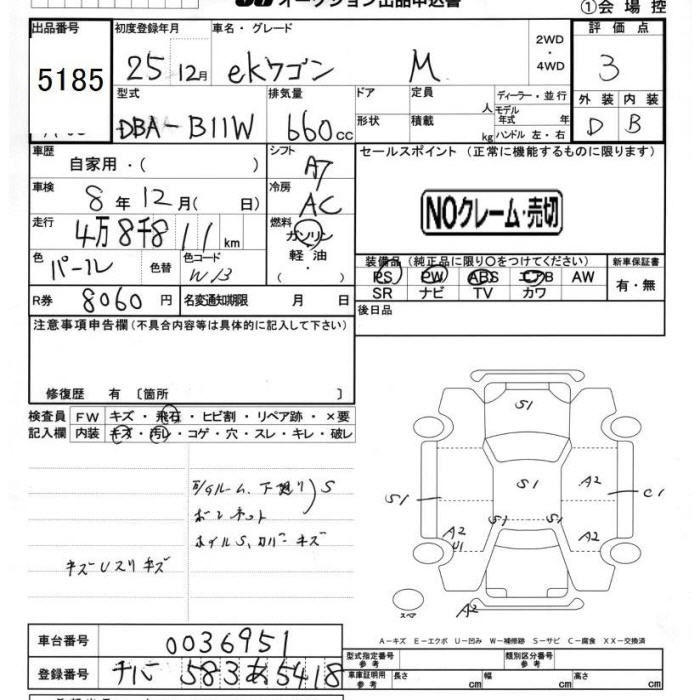 オークション出品申込書
①会場控
出品番号 初度登録年月 車名・グレード 2WD・4WD 評価点
5185 25 12月 ekワゴン M 3
型式 排気量 ドア 定員 人 ディーラー・並行 外装 内装
DBA-B11W 660cc 形状 積載 kg モデル年式 年 ハンドル 左・右 D B
車歴 自家用・( ) シフト AT セールスポイント (正常に機能するものに限ります)
車検 8年12月( 日) 冷房 AC
NOクレーム・売切
走行 4万8千811km 燃料 ガソリン 軽油・
色 パール 色替 色コード W13
装備品(純正品に限り〇をつけてください) 新車保証書
PS PW ABS エアB AW 有・無
SR ナビ TV カワ
R券 8060円 名変通知期限 月 日
後日品
注意事項申告欄(不具合内容等は具体的に記入して下さい)
修復歴 有 〔箇所 〕
検査員 FW キズ・飛石・ヒビ割・リペア跡・×要
記入欄 内装 キズ・汚レ・コゲ・穴・スレ・キレ・破レ
ルーム、下廻り S
ボンネット
ホイルS、カバーキズ
キズUスリキズ
S1
S1 S1 A2 C1
S1 S1
A2 A2
U1
スペア A2
A-キズ E-エクボ U-凹み W-補修跡 S-サビ C-腐食 XX-交換済
車台番号 0036951
型式指定番号 参考 類別区分番号 参考
登録番号 チバ 583 あ 5418
車庫証明用 参考 長さ cm 幅 cm 高さ cm